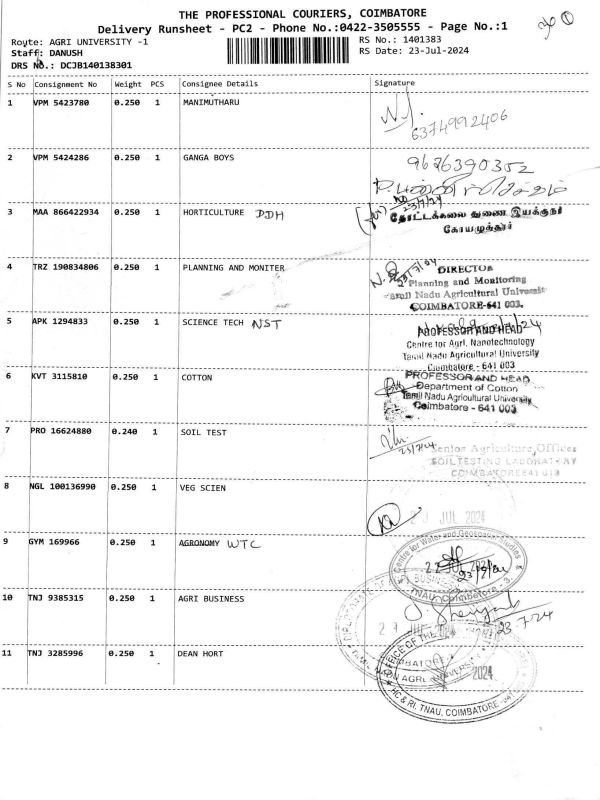 THE PROFESSIONAL COURIERS, COIMBATORE
Delivery Runsheet - PC2 - Phone No.:0422-3505555 - Page No.:1
Route: AGRI UNIVERSITY -1
RS No. : 1401383
Staff: DANUSH
RS Date: 23-Jul-2024
DRS No.: DCJB140138301
S No Consignment No Weight PCS Consignee Details Signature
1 VPM 5423780 0.250 1 MANIMUTHARU
6374992406
2 VPM 5424286 0.250 1 GANGA BOYS
9626390352
3 MAA 866422934 0.250 1 HORTICULTURE DDH
23/7/24
தோட்டக்கலை துணை இயக்குநர்
கோயமுத்தூர்
4 TRZ 190834806 0.250 1 PLANNING AND MONITER
23/7/24
DIRECTOR
Planning and Monitoring
Tamil Nadu Agricultural University
COIMBATORE-641 003.
5 APK 1294833 0.250 1 SCIENCE TECH NST
PROFESSOR AND HEAD
Centre for Agrl. Nanotechnology
Tamil Nadu Agricultural University
Coimbatore - 641 003
6 KVT 3115810 0.250 1 COTTON
PROFESSOR AND HEAD
Department of Cotton
Tamil Nadu Agricultural University
Coimbatore - 641 003
7 PRO 16624880 0.240 1 SOIL TEST
23/7/24
Senior Agriculture Officer
SOIL TESTING LABORATORY
COIMBATORE-641 013
8 NGL 100136990 0.250 1 VEG SCIEN
JUL 2024
9 GYM 169966 0.250 1 AGRONOMY WTC
Centre for Water and Geospatial Studies
TNAU, Coimbatore - 3.
10 TNJ 9385315 0.250 1 AGRI BUSINESS
23.7.24
11 TNJ 3285996 0.250 1 DEAN HORT
OFFICE OF THE
2024
HC & RI, TNAU, COIMBATORE